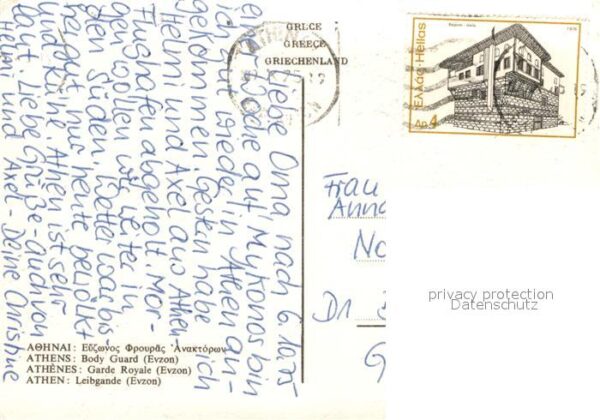 6.10.75
Liebe Oma, nach
einer Woche auf Mykonos bin
ich gut wieder in Athen an-
gekommen. Gestern habe ich
Helmi und Axel aus Athen
Flughafen abgeholt. Mor-
gen wollen wir weiter in
den Süden. Wetter war bis-
her gut nur heute bewölkt
und kühl. Athen ist sehr
laut. Liebe Grüße - auch von
Helmi und Axel - Deine Christine
GRÈCE
GREECE
GRIECHENLAND
Ελλάς-Hellas
Δρ. 4
Frau
Anna
No
D1
G
privacy protection
Datenschutz
ΑΘΗΝΑΙ: Εὔζωνος Φρουρᾶς Ἀνακτόρων
ATHENS: Body Guard (Evzon)
ATHÈNES: Garde Royale (Evzon)
ATHEN: Leibgande (Evzon)